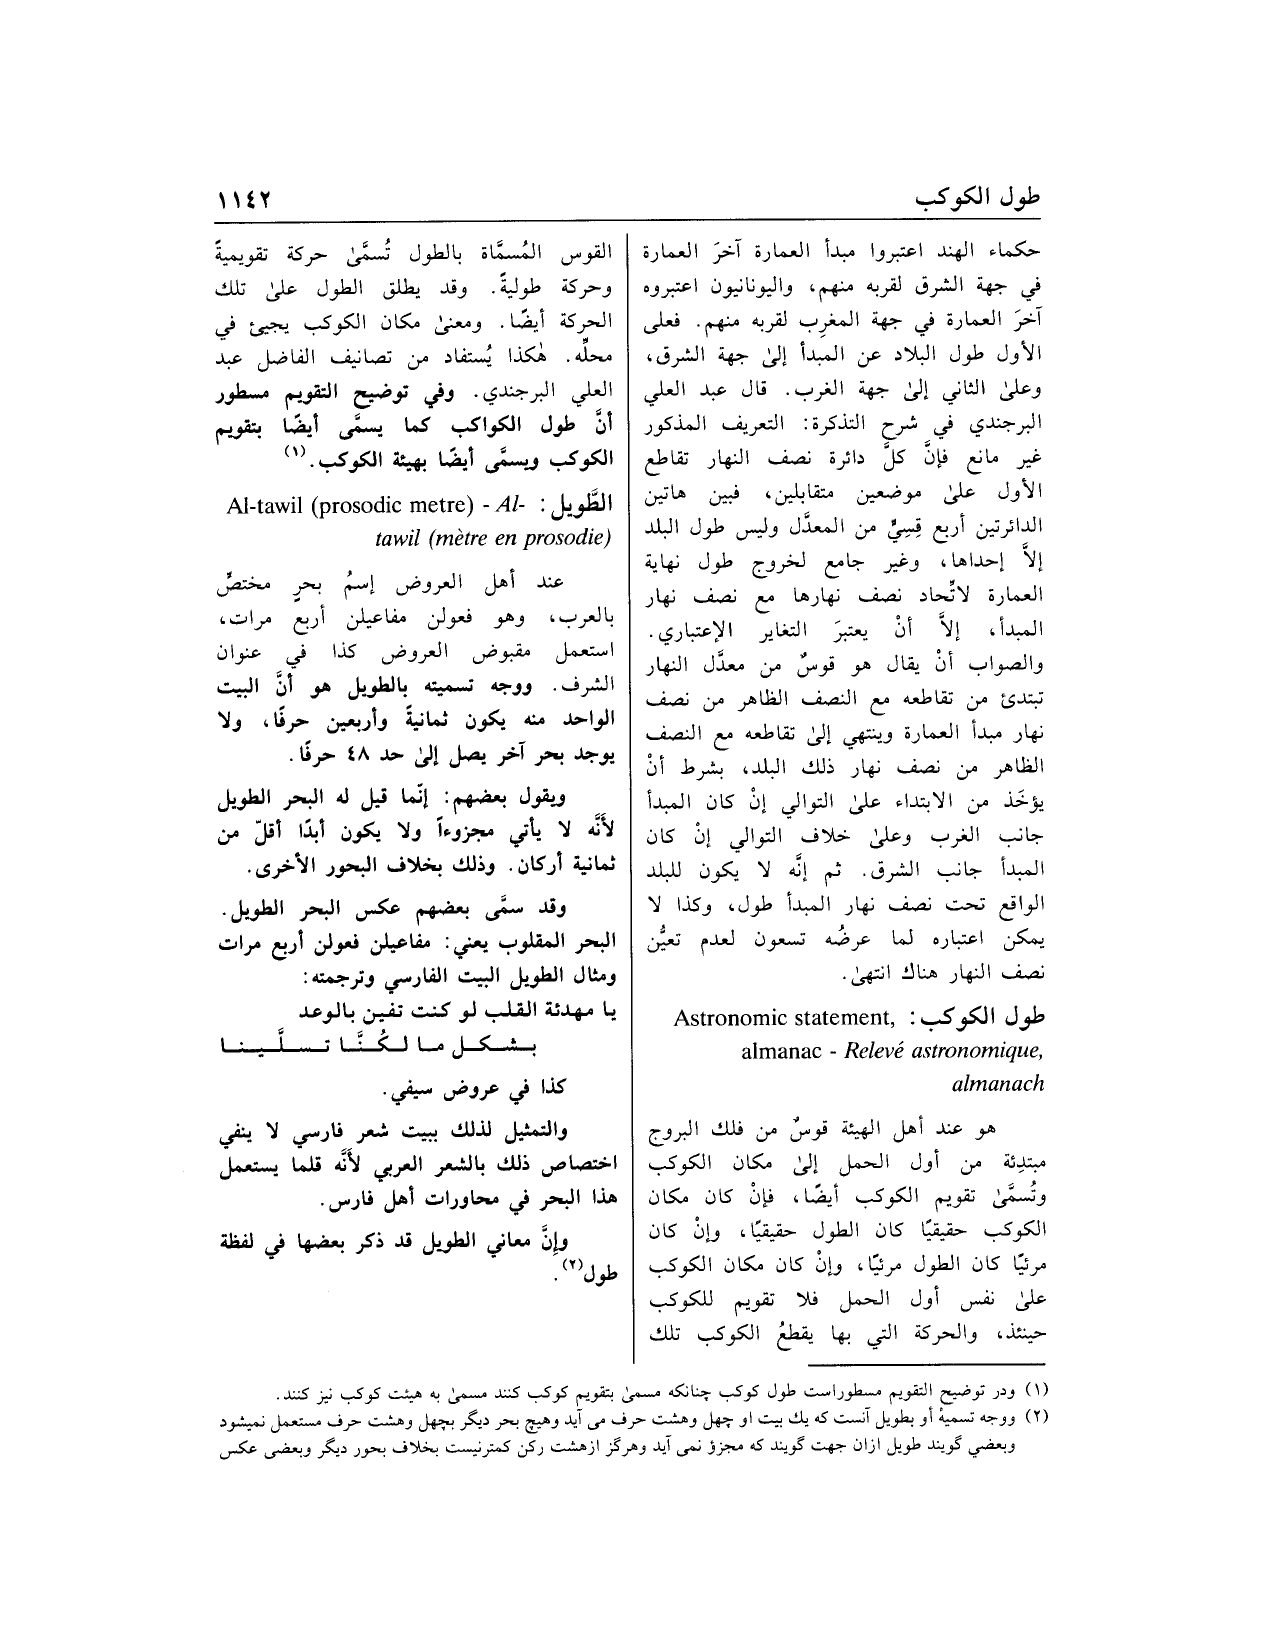 طول الكوكب
١١٤٢
حكماء الهند اعتبروا مبدأ العمارة آخرَ العمارة
في جهة الشرق لقربه منهم، واليونانيون اعتبروه
آخرَ العمارة في جهة المغرِب لقربه منهم. فعلى
الأول طول البلاد عن المبدأ إلىٰ جهة الشرق،
وعلىٰ الثاني إلىٰ جهة الغرب. قال عبد العلي
البرجندي في شرح التذكرة: التعريف المذكور
غير مانع فإنَّ كلَّ دائرة نصف النهار تقاطع
الأول علىٰ موضعين متقابلين، فبين هاتين
الدائرتين أربع قِسِيٍّ من المعدَّل وليس طول البلد
إلاَّ إحداها، وغير جامع لخروج طول نهاية
العمارة لاتِّحاد نصف نهارها مع نصف نهار
المبدأ، إلاَّ أنْ يعتبرَ التغاير الإعتباري.
والصواب أنْ يقال هو قوسٌ من معدَّل النهار
تبتدئ من تقاطعه مع النصف الظاهر من نصف
نهار مبدأ العمارة وينتهي إلىٰ تقاطعه مع النصف
الظاهر من نصف نهار ذلك البلد، بشرط أنْ
يؤخَذ من الابتداء علىٰ التوالي إنْ كان المبدأ
جانب الغرب وعلىٰ خلاف التوالي إنْ كان
المبدأ جانب الشرق. ثم إنَّه لا يكون للبلد
الواقع تحت نصف نهار المبدأ طول، وكذا لا
يمكن اعتباره لما عرضُه تسعون لعدم تعيُّن
نصف النهار هناك انتهىٰ.
طول الكوكب: Astronomic statement,
almanac - Relevé astronomique,
almanach
هو عند أهل الهيئة قوسٌ من فلك البروج
مبتدِئة من أول الحمل إلىٰ مكان الكوكب
وتُسمَّىٰ تقويم الكوكب أيضًا، فإنْ كان مكان
الكوكب حقيقيًا كان الطول حقيقيًا، وإنْ كان
مرئيًا كان الطول مرئيًا، وإنْ كان مكان الكوكب
علىٰ نفس أول الحمل فلا تقويم للكوكب
حينئذ، والحركة التي بها يقطعُ الكوكب تلك
القوس المُسمَّاة بالطول تُسمَّىٰ حركة تقويميةً
وحركة طوليةً. وقد يطلق الطول علىٰ تلك
الحركة أيضًا. ومعنىٰ مكان الكوكب يجيئ في
محلِّه. هٰكذا يُستفاد من تصانيف الفاضل عبد
العلي البرجندي. وفي توضيح التقويم مسطور
أنَّ طول الكواكب كما يسمَّى أيضًا بتقويم
الكوكب ويسمَّى أيضًا بهيئة الكوكب.(١)
الطَّويل: Al-tawil (prosodic metre) - Al-
tawil (mètre en prosodie)
عند أهل العروض إسمُ بحرٍ مختصٍّ
بالعرب، وهو فعولن مفاعيلن أربع مرات،
استعمل مقبوض العروض كذا في عنوان
الشرف. ووجه تسميته بالطويل هو أنَّ البيت
الواحد منه يكون ثمانيةً وأربعين حرفًا، ولا
يوجد بحر آخر يصل إلىٰ حد ٤٨ حرفًا.
ويقول بعضهم: إنّما قيل له البحر الطويل
لأنَّه لا يأتي مجزوءاً ولا يكون أبدًا أقلّ من
ثمانية أركان. وذلك بخلاف البحور الأخرى.
وقد سمَّى بعضهم عكس البحر الطويل.
البحر المقلوب يعني: مفاعيلن فعولن أربع مرات
ومثال الطويل البيت الفارسي وترجمته:
يا مهدئة القلب لو كنت تفين بالوعد
بشكل ما لكُنَّا تسلَّينا
كذا في عروض سيفي.
والتمثيل لذلك ببيت شعر فارسي لا ينفي
اختصاص ذلك بالشعر العربي لأنَّه قلما يستعمل
هذا البحر في محاورات أهل فارس.
وإنَّ معاني الطويل قد ذكر بعضها في لفظة
طول(٢).
(١) ودر توضيح التقويم مسطوراست طول كوكب چنانكه مسمىٰ بتقويم كوكب كنند مسمىٰ به هيئت كوكب نيز كنند.
(٢) ووجه تسميهٔ أو بطويل آنست كه يك بيت او چهل وهشت حرف مى آيد وهيچ بحر ديگر بچهل وهشت حرف مستعمل نميشود
وبعضي گويند طويل ازان جهت گويند كه مجزؤ نمى آيد وهرگز ازهشت ركن كمترنيست بخلاف بحور ديگر وبعضى عكس